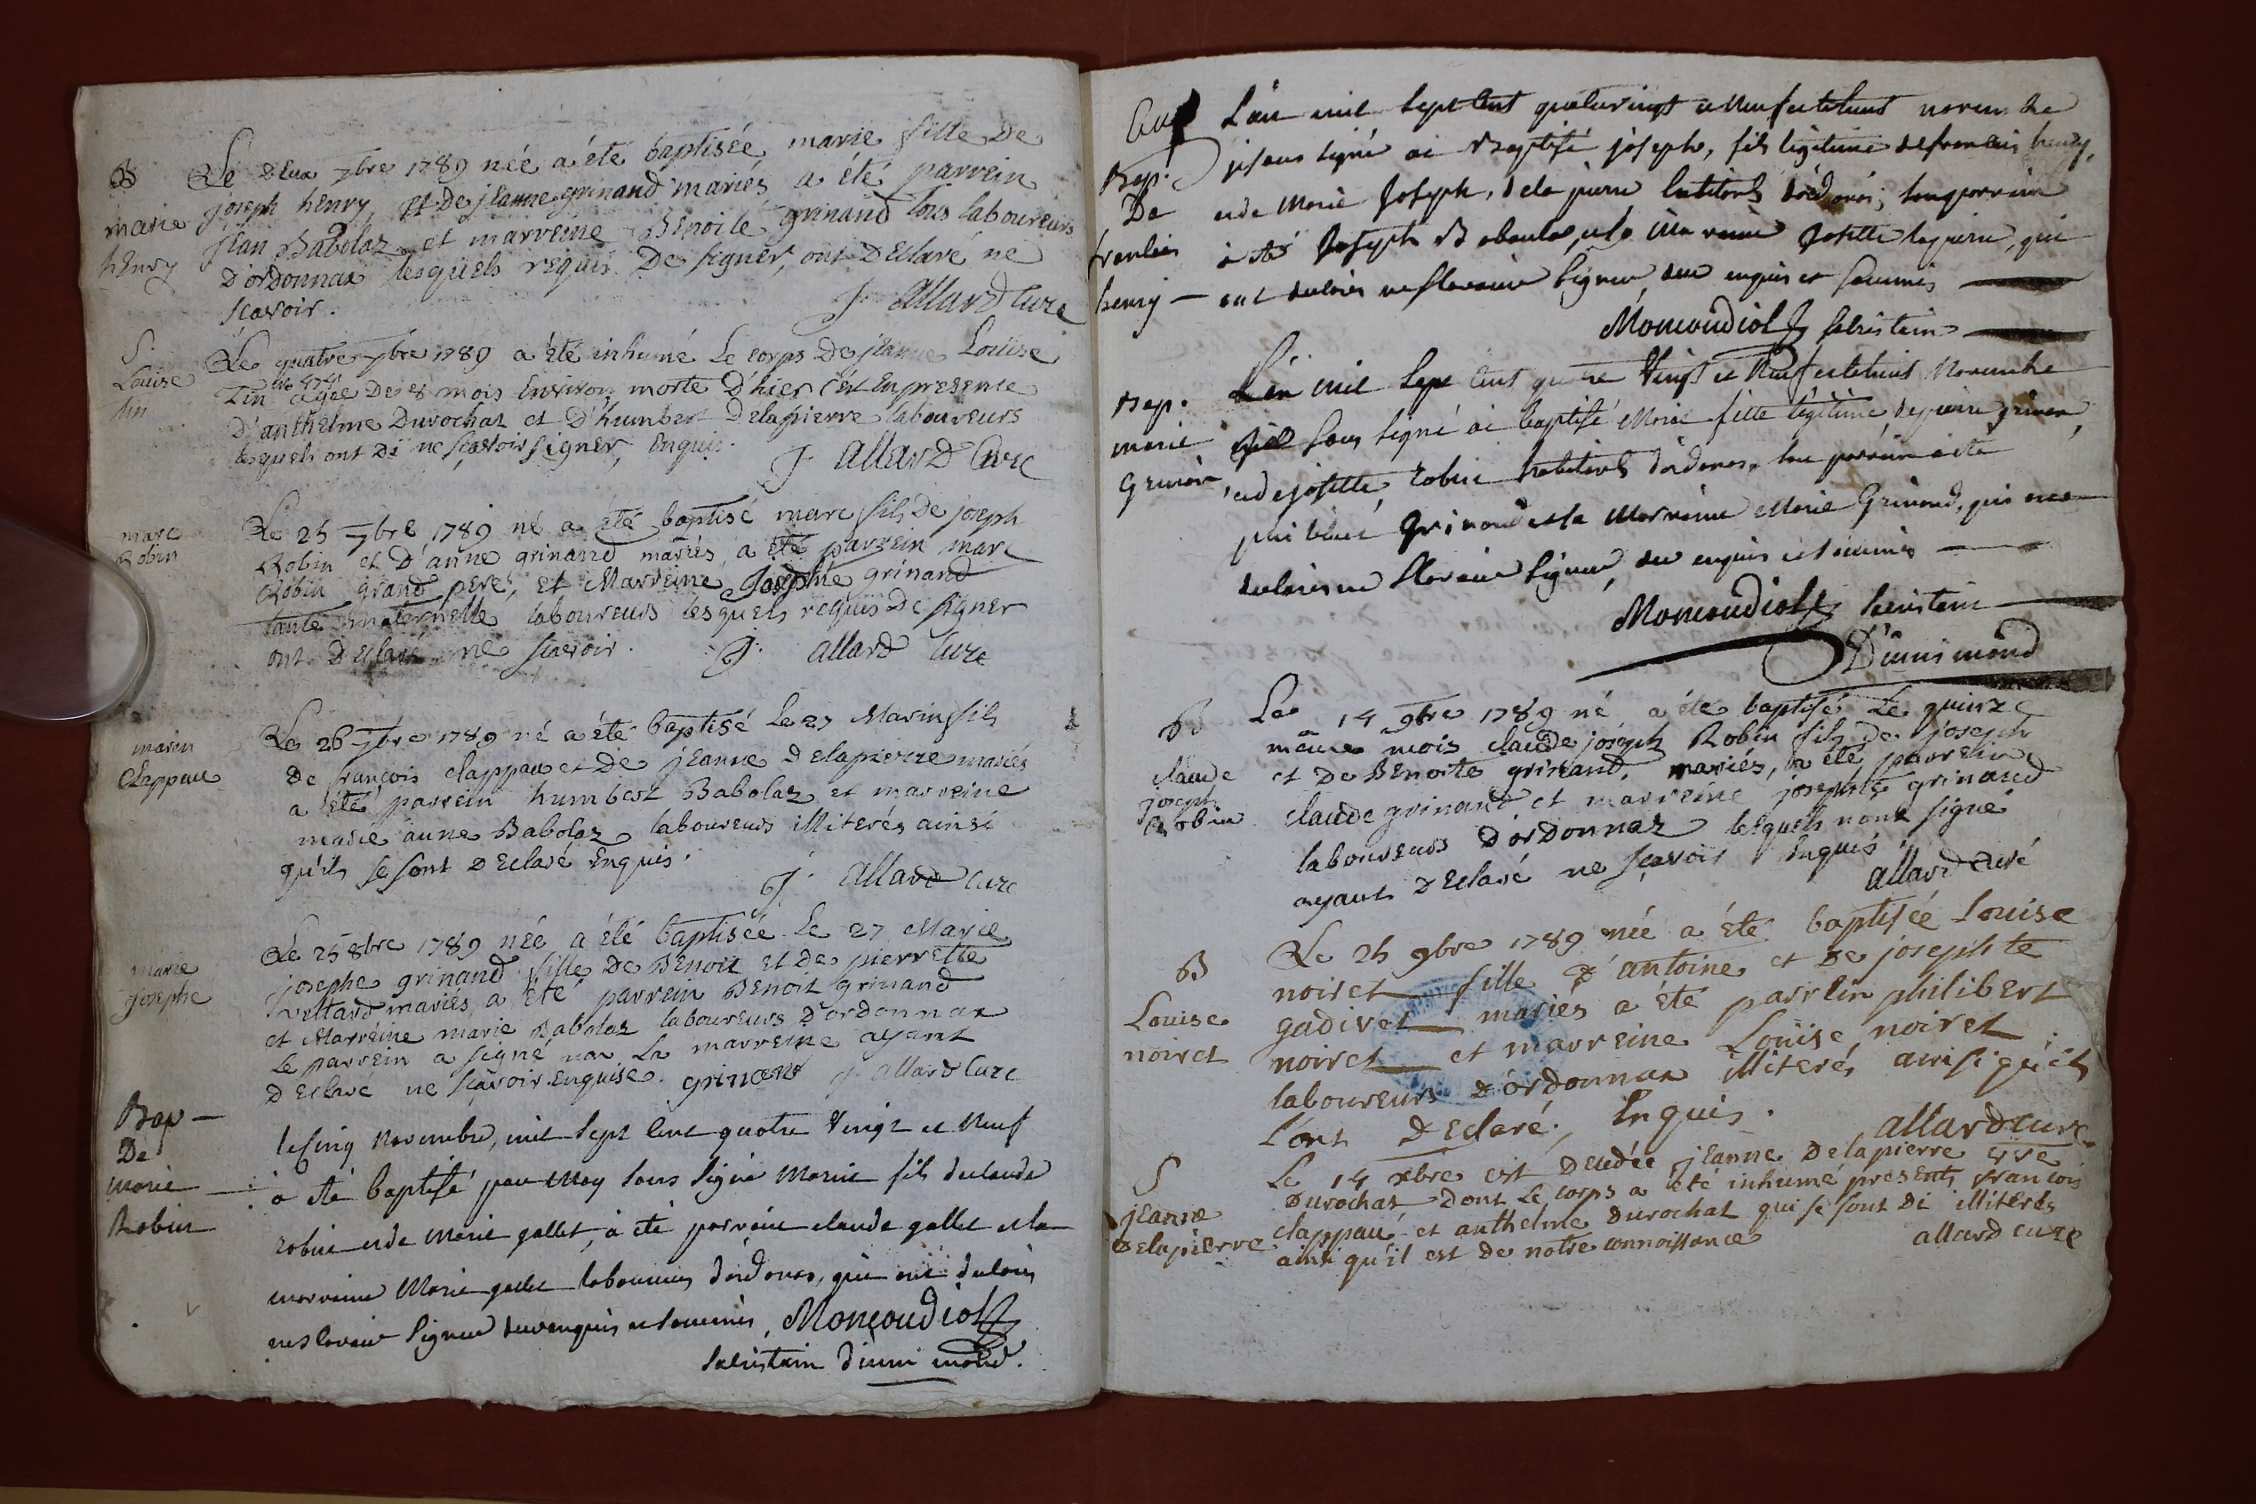 B
marie
henry
Le deux 7bre 1789 née a été baptisée marie fille de
joseph henry, et de jeanne grinand mariés, a été parrein
jean Babolaz et marreine Benoite grinand tous laboureurs
d'ordonnax lesquels requis de signer, ont declaré ne
scavoir.
J allard Curé
S
Louise
tin
Le quatre 7bre 1789 a été inhumé le corps de jeanne Louise
Tin agée de 18 mois environ morte d'hier c'est en presence
d'anthelme Durochat et d'humbert Delapierre laboureurs
lesquels ont di ne sçavoir signer, enquis.
J allard Curé
marc
Robin
Le 25 7bre 1789 né a été baptisé marc fils de joseph
Robin et d'anne grinand mariés, a été parrein marc
Robin grand pere, et Marreine Josephte grinand
tante maternelle laboureurs lesquels requis de signer
ont declaré ne scavoir. J. allard Curé
marin
Clappau
Le 26 7bre 1789 né a été baptisé le 27 Marin fils
de françois clappau et de jeanne Delapierre mariés
a été parrein humbert Babolaz et marreine
marie anne Babolaz laboureurs illiterés ainsi
qu'ils se sont declaré enquis.
J. allard Curé
marie
Josephe
Le 25 8bre 1789 née a été baptisée le 27 Marie
josephe grinand fille de Benoit et de pierrette
vettard mariés, a été parrein Benoit grinand
et Marreine marie Babolaz laboureurs d'ordonnax
le parrein a signé non la marreine ayant
declaré ne sçavoir enquise. grinand J allard Curé
Bap
De
marie
Robin
le cinq Novembre, mil sept cent quatre vingt et neuf
a été baptisé par moy sous signé Marie fils de claude
robin et de marie gallet, a été parrain claude gallet et la
marraine Marie gallet laboureurs d'ordonas, qui ont declarés
ne scavoir signer de ce enquis et sommés, Moncoudiol
sacristain d'inimond.
Bap.
De
françois
henry
L'an mil sept cent quatre vingt et neuf et le huit novembre
je sous signé ai Baptisé joseph, fils légitime de françois henry,
et de Marie Joseph, dela pierre habitants d'ordonas; son parrain
a été Joseph Babolas, et la Marraine Josette lapierre, qui
ont declarés ne scavoir signer, de ce enquis et sommés
Moncoudiol sacristain
Bap.
marie
Grinan
L'an mil sept cent quatre vingt et neuf et le huit Novembre
je sous signé ai baptisé Marie fille légitime, de pierre grinan,
et de josette, robin habitants d'ordonas, son parrain a été
philibert Grinand et la Marraine Marie Grinand, qui ont
declarés ne scavoir signer, de ce enquis et sommés
Moncoudiol sacristain
D'inimond
B
claude
joseph
Robin
Le 14 9bre 1789 né a été baptisé le quinze
même mois claude joseph Robin fils de joseph
et de Benoite grinand, mariés, a été parrein
claude grinand et marreine josephte grinand
laboureurs d'ordonnaz lesquels n'ont signé
ayant declaré ne sçavoir enquis
allard curé
B
Louise
noiret
Le 25 9bre 1789 née a été baptisée Louise
noiret fille d'antoine et de josephte
gadivet mariés a été parrein philibert
noiret et marreine Louise noiret
laboureurs d'ordonnax illiterés ainsi qu'ils
l'ont declaré, enquis.
allard curé
S
jeanne
Delapierre
Le 14 xbre est decedée jeanne Delapierre vve
Durochat dont le corps a été inhumé presents françois
clappau et anthelme durochat qui se sont di illiterés
ainsi qu'il est de notre connoissance allard curé